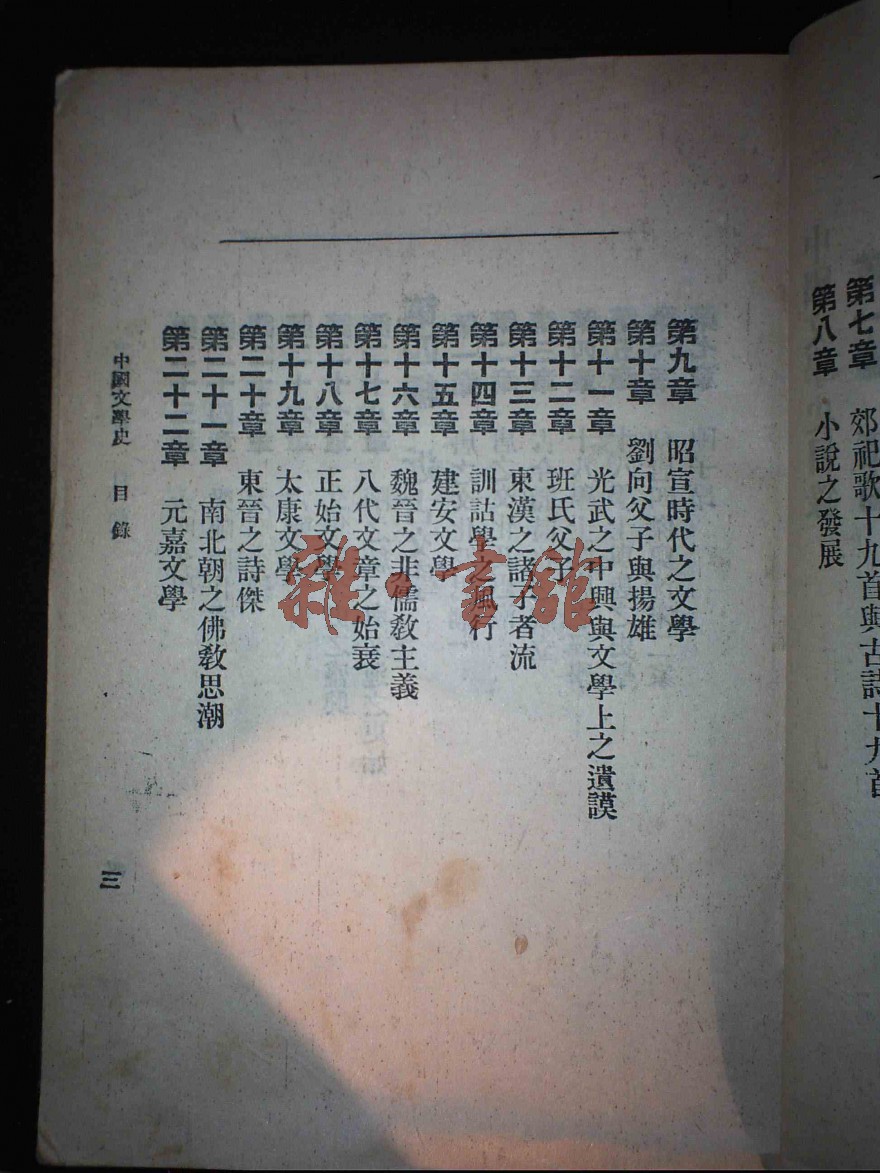 第七章　郊祀歌十九首與古詩十九首
第八章　小說之發展
第九章　昭宣時代之文學
第十章　劉向父子與揚雄
第十一章　光武之中興與文學上之遺謨
第十二章　班氏父子
第十三章　東漢之諸子者流
第十四章　訓詁學之風行
第十五章　建安文學
第十六章　魏晉之非儒教主義
第十七章　八代文章之始衰
第十八章　正始文學
第十九章　太康文學
第二十章　東晉之詩傑
第二十一章　南北朝之佛教思潮
第二十二章　元嘉文學
中國文學史　目錄
三
雜·書館